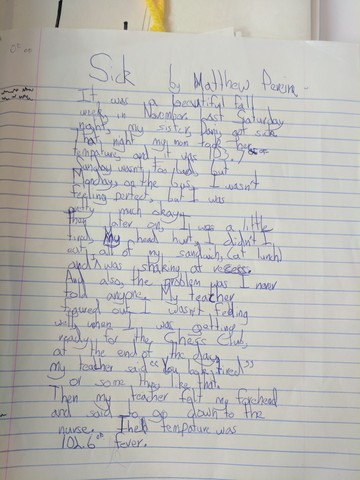 Sick by Matthew
It was a beautiful fall
week in November. Last Saturday
night, my sister, got sick
that night my mom took her
tempature, and it was 103.7
Sunday wasn't too bad, but
Monday, on the bus, I wasn't
feeling perfect, but I was
pretty much okay.
Then later on, I was a little
tired, My head hurt, I didn't
eat all of my sandwich, (at lunch)
and I was shaking at recess.
And also, the problem was I never
told anyone. My teacher
figured out I wasn't feeling
well when I was getting
ready for the Chess Club,
at the end of the day,
my teacher said "You look tired"
or some thing like that.
Then my teacher felt my forehead
and said to go down to the
nurse. The tempature was
102.6 fever.